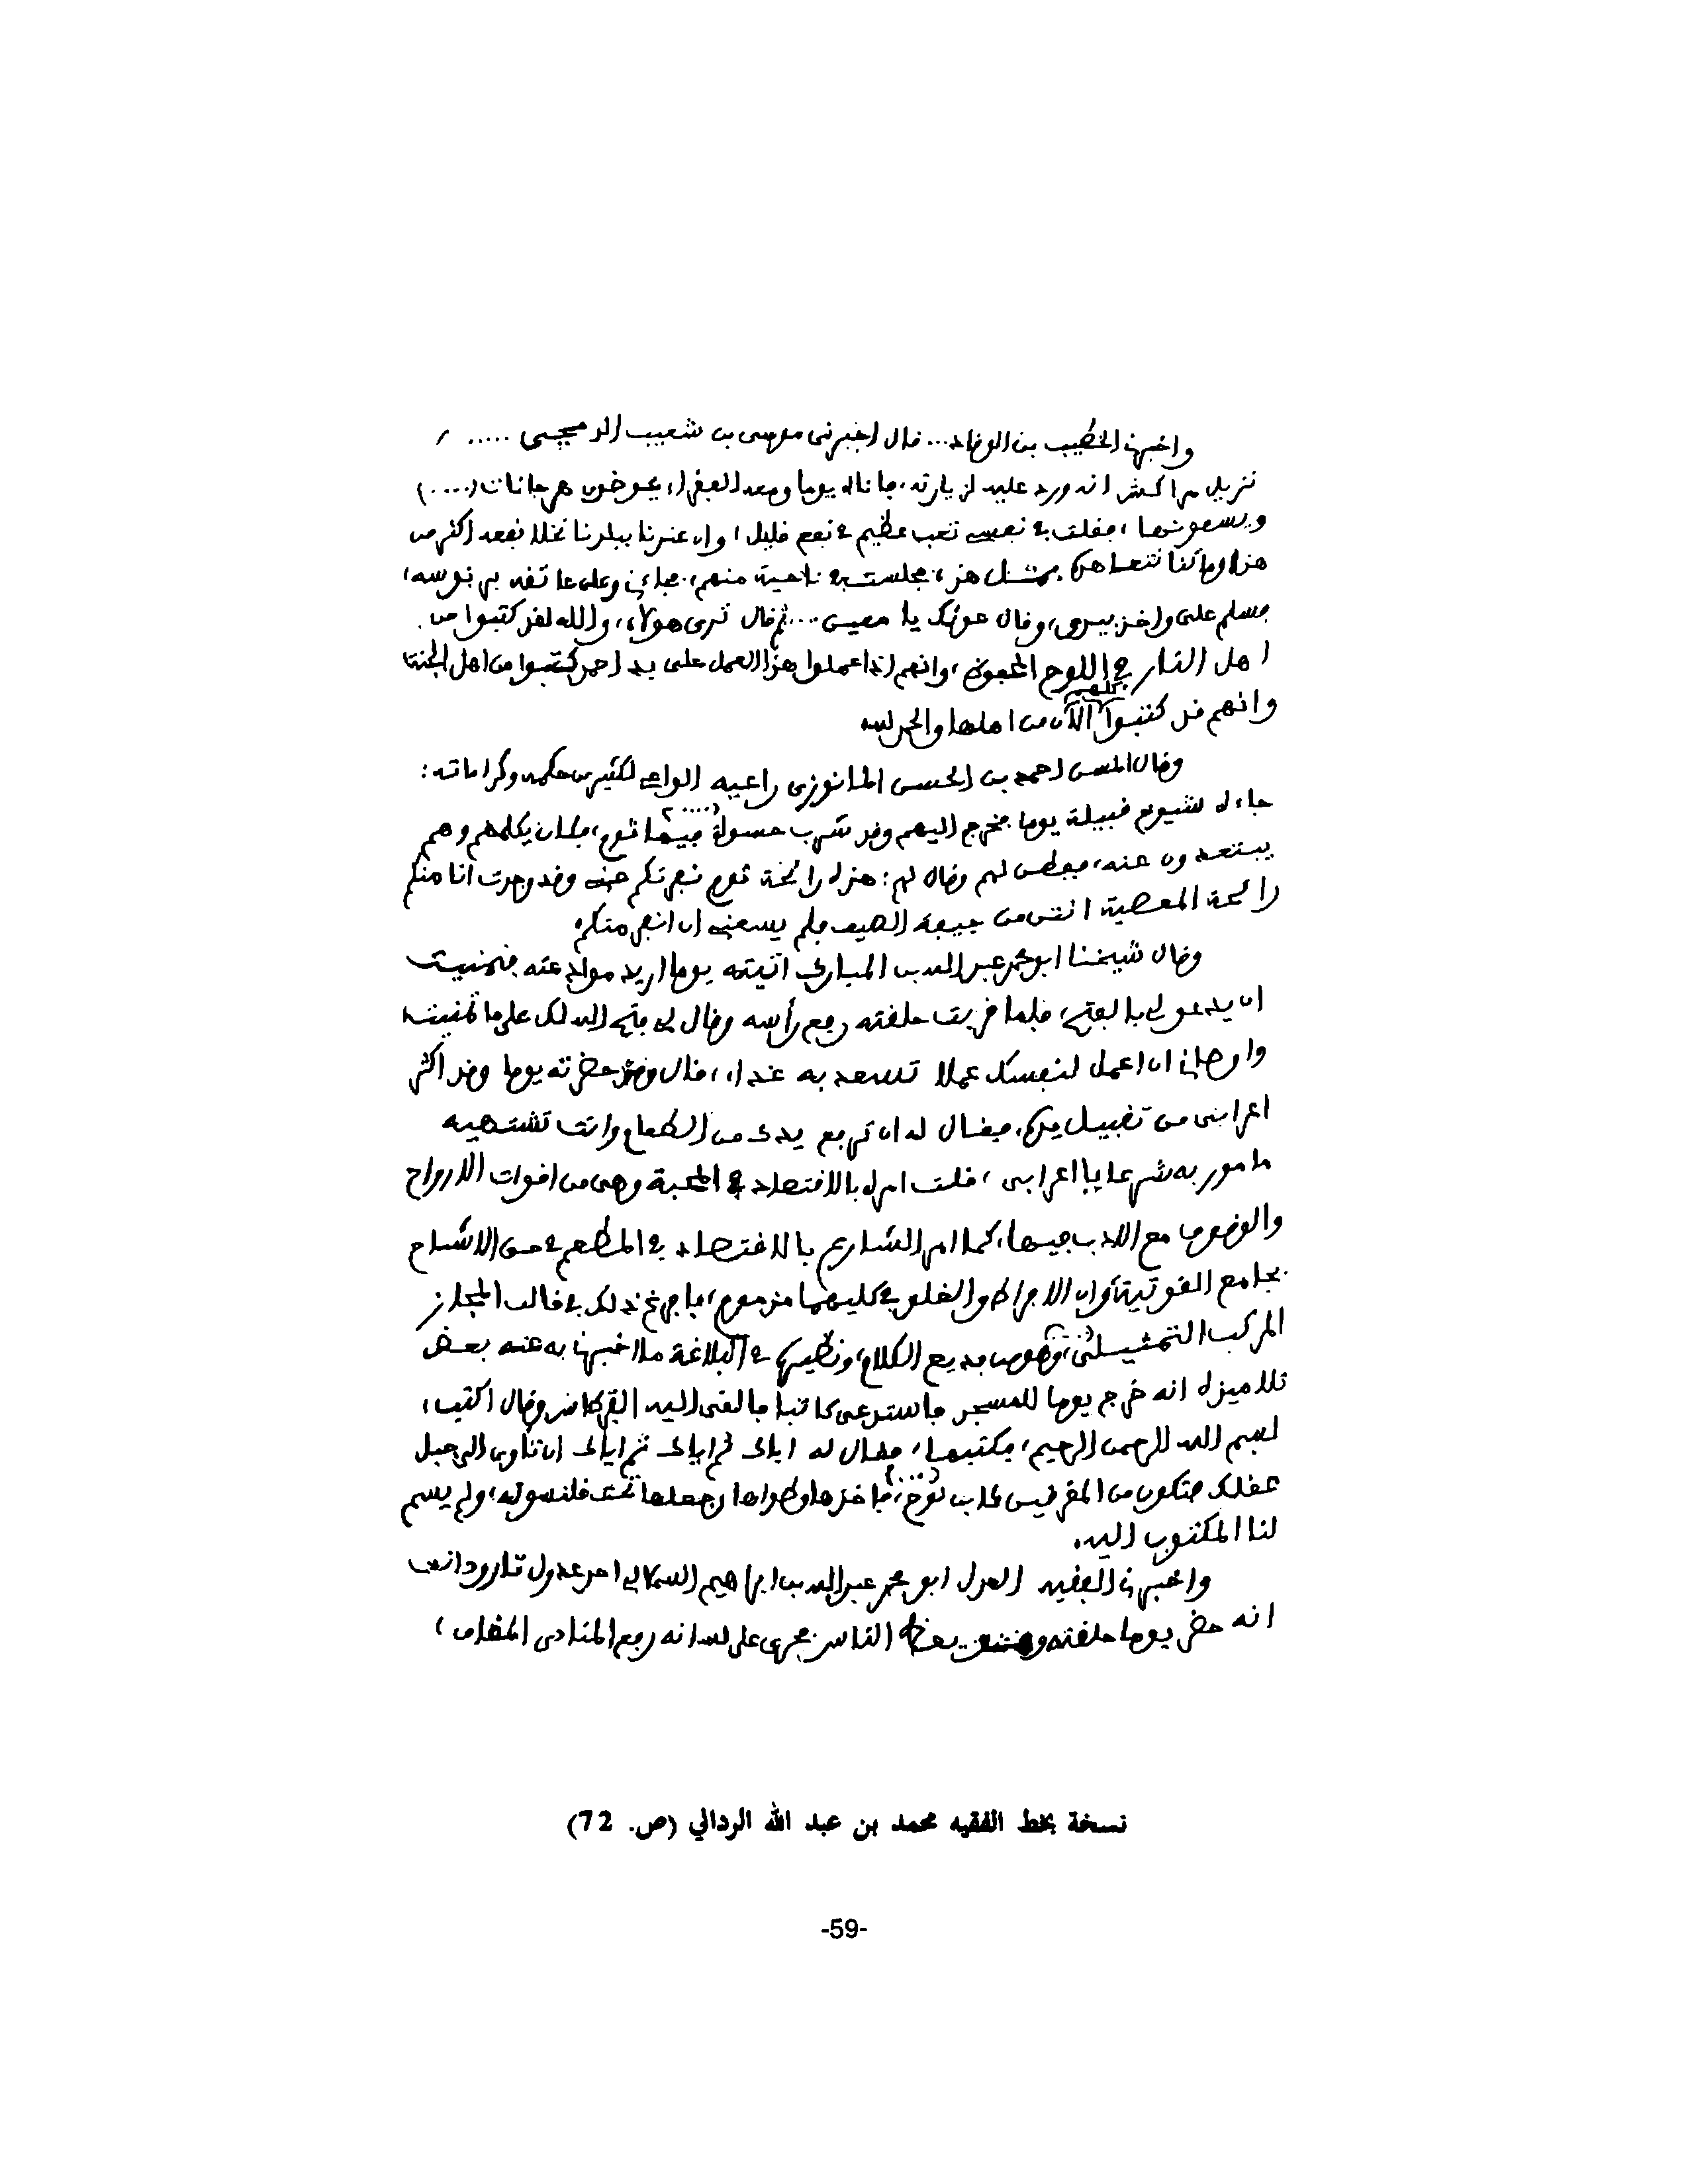 واخبرني الخطيب بن الوفاد... قال اخبرني موسى بن شعيب .....
نزيل مراكش انه ورد عليه لزيارته، فاتاه يوما ومعه الفقراء يعوضون هرجانات (....)
ويسعونها، فقلت في نفسي تعب عظيم في نفع قليل، وان عندنا ببلدنا نخلا نفعه اكثر من
هذا وما كنا نتعاهده بمثل هذا، فجلست في ناحية منهم، فجاءني وعلى عاتقه برنوسه،
فسلم علي واخذ بيدي، وقال عونك يا ... ثم قال ترى هولاء، والله لقد كتبوا من
اهل النار في اللوح المحفوظ، وانهم اذا عملوا هذا العمل على يد احمد كتبوا من اهل الجنة
وانهم قد كتبوا كلهم الآن من اهلها والحمد لله
وقال الحسن احمد بن الحسن المانوزي راعيه الواعي لكثير من حكمه وكراماته:
جاءه شيوخ قبيلة يوما فخرج اليهم وقد شرب حسوة (....) فيها ثوم، فكان يكلمهم وهم
يبتعدون عنه، ففطن لهم وقال لهم: هذه رائحة ثوم نفرتكم عني وقد وجدت انا منكم
رائحة المعصية انتن من جيفة الصيف فلم يسعني ان انفر منكم
وقال شيخنا ابو محمد عبد الله بن المبارك اتيته يوما اريد موادعته فتمنيت
ان يدعو لي بالفتح، فلما قربت حلقته رفع رأسه وقال لي فتح الله لك على ما تمنيت،
واوصاني ان اعمل لنفسك عملا تسعد به غدا، قال وقد حضرته يوما وقد اكثر
اعرابي من تقبيل يده، فقال له ان ترفع يدك من الطعام وانت تشتهيه
مامور به شرعا يا اعرابي، قلت امره بالاقتصاد في المحبة وهي من اقوات الارواح
والوقوف مع الادب فيها، كما امر الشارع بالاقتصاد في المطعم في حق الاشباح
بجامع القوتية وان الافراط والغلو في كليهما مذموم، فافرغ ذلك في قالب المجاز
المركب التمثيلي (....)، وهو من بديع الكلام، ونظيرها في البلاغة ما اخبرني به عنه بعض
تلاميذه انه خرج يوما للمسجد فاستدعى كاتبا فالقى اليه القرطاس وقال اكتب،
بسم الله الرحمن الرحيم، فكتبها، فقال له اياك ثم اياك ثم اياك ان تأوي الى جبل
عقلك فتكون من المغرقين كابن نوح (....)، فاخذها وطواها وجعلها تحت قلنسوته، ولم يسم
لنا المكتوب اليه.
واخبرني الفقيه العدل ابو محمد عبد الله بن ابراهيم السملالي احد عدول تارودانت
انه حضر يوما حلقته بعض الناس فجرى على لسانه رفع المنادى المضاف،
نسخة بخط الفقيه محمد بن عبد الله الردالي (ص. 72)
-59-